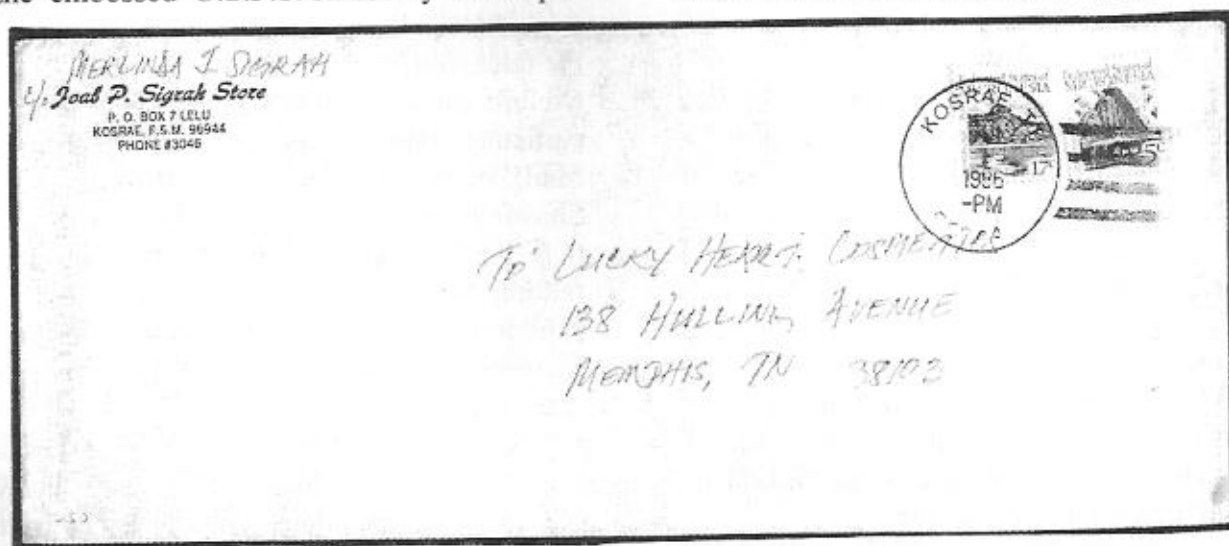 the embossed
MERLINDA J SIGRAH
c/o Joab P. Sigrah Store
P. O. BOX 7 LELU
KOSRAE, F.S.M. 96944
PHONE #3046
KOSRAE, TT
1986
-PM
17c
To: LUCKY HEART COSMETICS
138 HULLING AVENUE
MEMPHIS, TN 38103